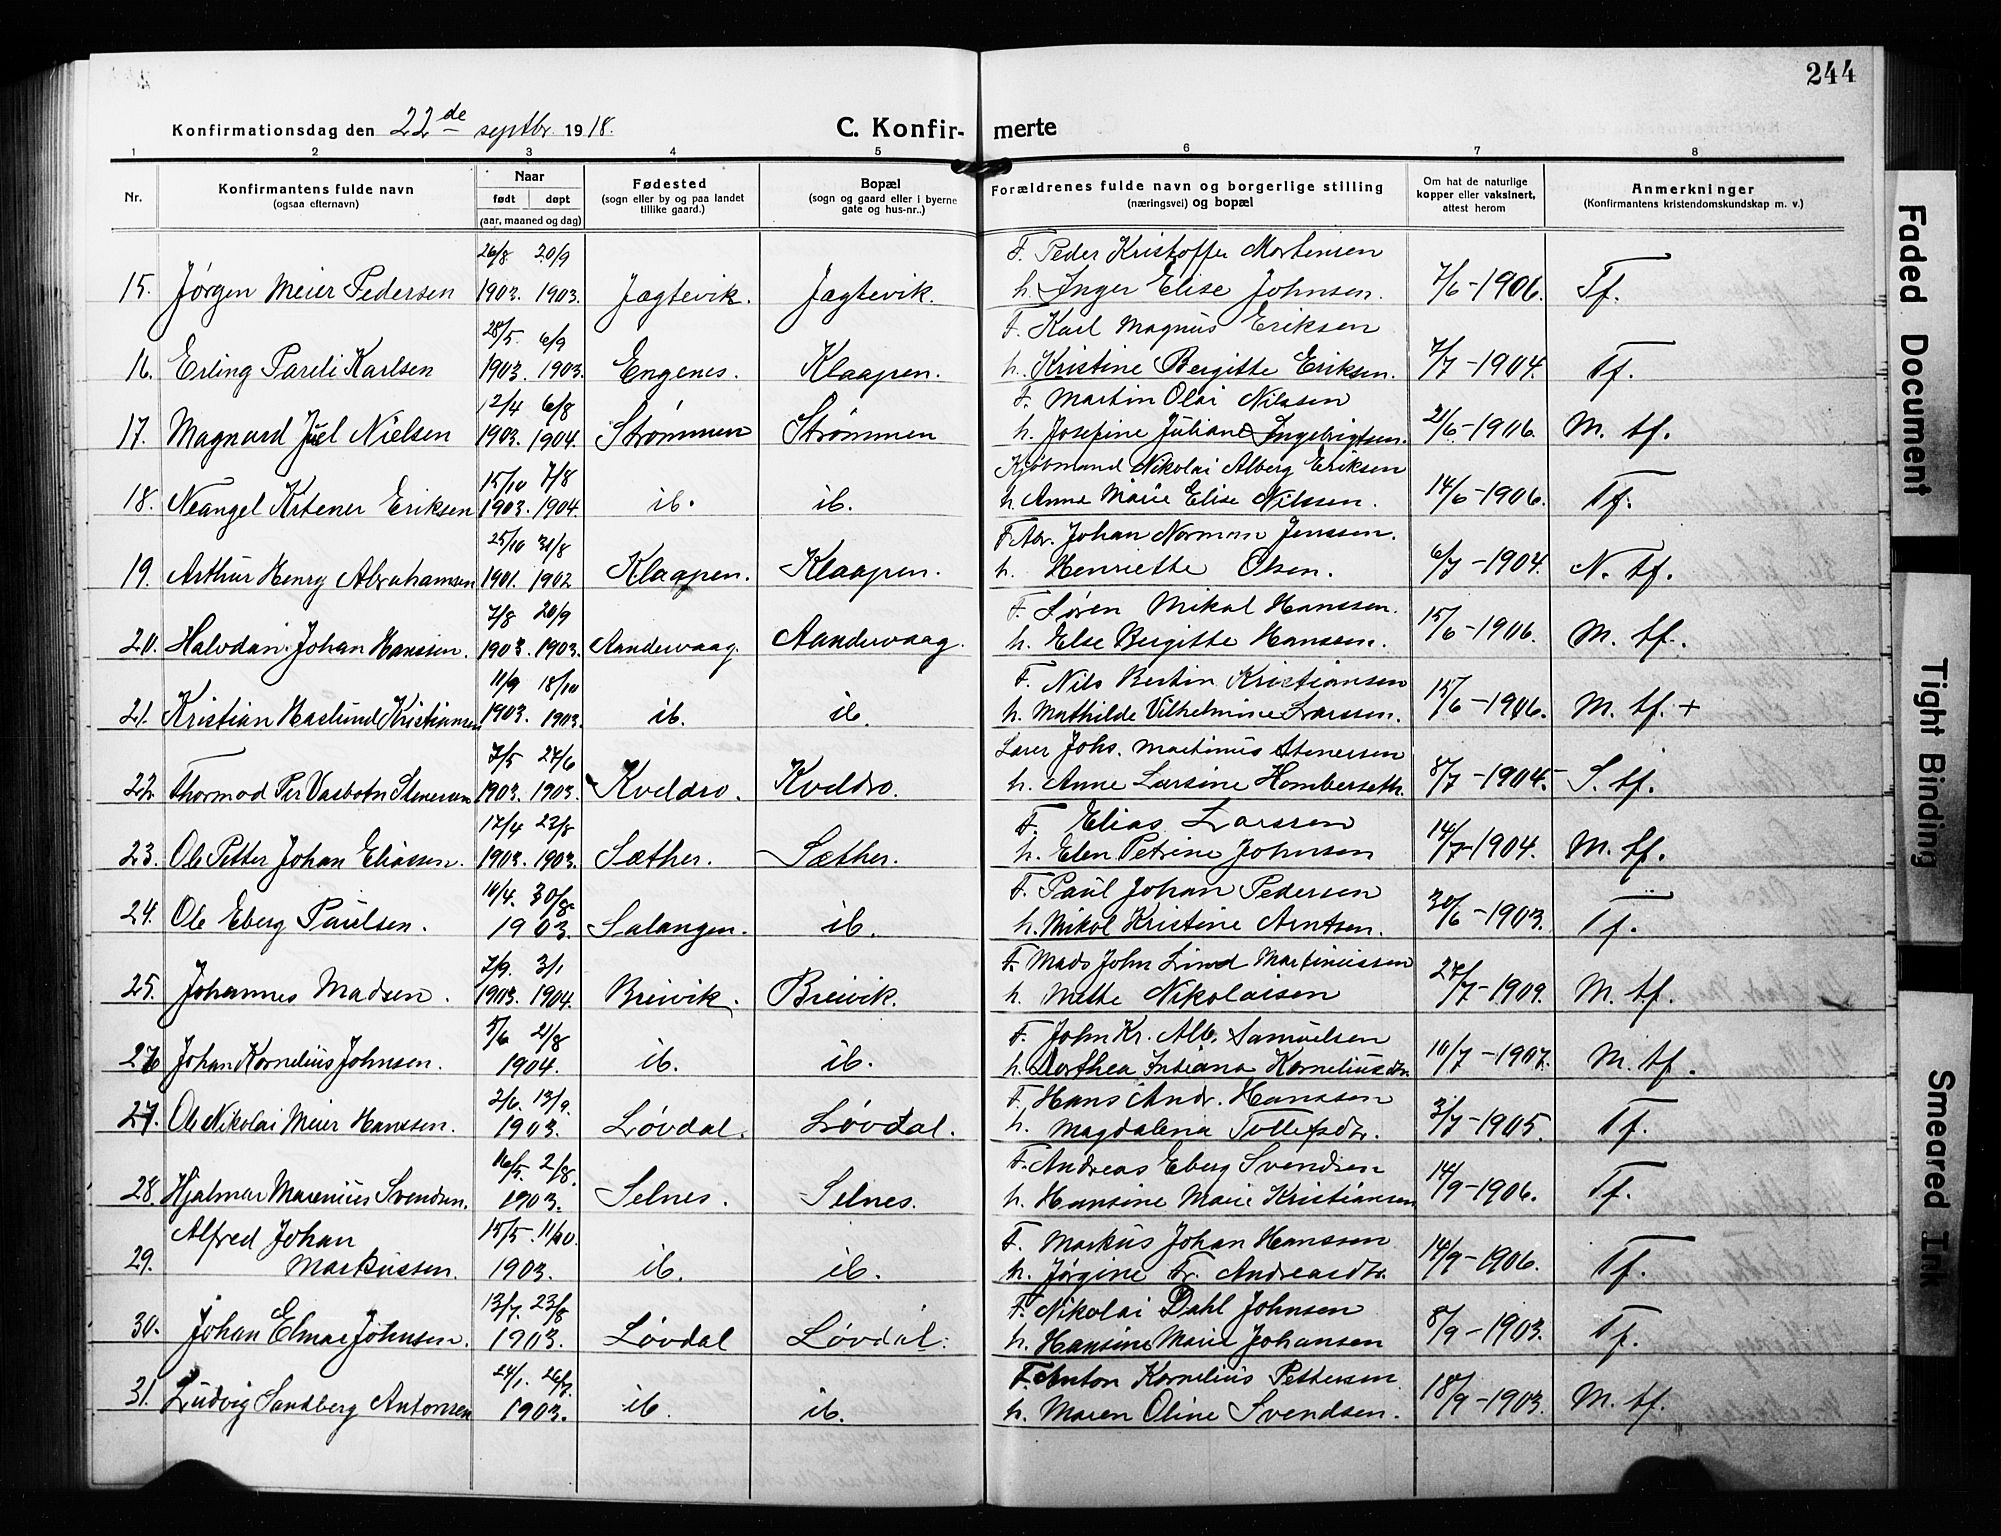 244
Konfirmationsdag den 22de septbr. 1918.
C. Konfir-merte
1 2 3 4 5 6 7 8
Nr.
Konfirmantens fulde navn
(ogsaa efternavn)
Naar
født døpt
(aar, maaned og dag)
Fødested
(sogn eller by og paa landet
tillike gaard.)
Bopæl
(sogn og gaard eller i byerne
gate og hus-nr..)
Forældrenes fulde navn og borgerlige stilling
(næringsvei) og bopæl
Om hat de naturlige
kopper eller vaksinert,
attest herom
Anmerkninger
(Konfirmantens kristendomskundskap m. v.)
26/8 20/9 F. Peder Kristoffer Mortensen
15. Jørgen Meier Pedersen 1903. 1903. Jægtevik. Jægtevik. h. Inger Elise Johnsen. 7/6-1906. Tf.
28/5 6/9 F. Karl Magnus Eriksen
16. Erling Pareli Karlsen 1903. 1903. Engenes. Klaapen. h. Kristine Bergitte Eriksen. 7/7-1904. Tf.
12/4 6/8 F. Martin Olai Nilssen
17. Magnard Juel Nielsen 1903. 1904. Strømmen Strømmen h. Josefine Juliane Ingebrigtsen. 21/6-1906. M. tf.
15/10 7/8 Kjøbmand Nikolai Alberg Eriksen
18. Neangel Krtener Eriksen 1903. 1904. ib. ib. h. Anna Marie Elise Nilssen. 14/6-1906. Tf.
25/10 31/8 F. Abr. Johan Normann Jenssen.
19. Arthur Henry Abrahamsen 1901. 1902 Klaapen. Klaapen. h. Henriette Olsen. 6/7-1904. N. tf.
7/8 20/9 F. Søren Mikal Hanssen.
20. Halvdan Johan Hanssen. 1903. 1903. Aandervaag. Aandervaag. h. Else Bergitte Hanssen. 15/6-1906. M. tf.
11/9 18/10 F. Nils Bertin Kristiansen
21. Kristian Haslund Kristiansen 1903. 1903. ib. ib. h. Mathilde Vilhelmine Larssen. 15/6-1906. M. tf. +
7/5 27/6 Lærer Johs. Martinus Stenersen
22 Thormod Per Vasbotn Stenersen 1903. 1903. Kveldro. Kveldro. h. Anne Larsine Homberseth. 8/7-1904- S. tf.
17/4 23/8 F. Elias Larssen
23. Ole Petter Johan Eliassen. 1903. 1903. Sæther. Sæther. h. Elen Petrine Johnsen 14/7-1904. M. tf.
10/4. 30/8 F. Paul Johan Pedersen
24. Ole Eberg Paulsen. 1903. Salangen. ib. h. Mikol Kristine Arntsen. 30/6-1903. Tf.
7/9. 3/1 F. Mads John Lind Martinussen
25. Johannes Madsen. 1903. 1904. Breivik. Breivik. h. Mette Nikolaisen 27/7-1909. M. tf.
5/6 21/8 F. John Kr. Alb. Samuelsen
26 Johan Kornelius Johnsen. 1904. ib. ib. h. Dorthea Indiana Korneliusdtr. 10/7-1907. M. tf.
2/6. 13/9. F. Hans Andr. Hanssen
27. Ole Nikolai Meier Hanssen. 1903. Løvdal. Løvdal. h. Magdalena Tollefsdtr. 3/7-1905. Tf.
16/5. 2/8. F. Andreas Eberg Svendsen
28. Hjalmar Marenius Svendsen. 1903. Selnes. Selnes. h. Hansine Marie Kristiansen 14/9-1906. Tf.
Alfred Johan 15/5. 11/10. F. Markus Johan Hanssen
29. Markussen. 1903. ib. ib. h. Jørgine Fr. Andreasdtr. 14/9-1906. Tf.
13/7. 23/8 F. Nikolai Dahl Johnsen
30. Johan Elmar Johnsen. 1903. Løvdal Løvdal. h. Hansine Marie Johansen 8/9-1903. Tf.
24/1. 26/7. F. Anton Kornelius Pettersen
31. Ludvig Sandberg Antonsen 1903. ib. ib. h. Maren Oline Svendsen. 18/9-1903. M. tf.
Faded Document
Tight Binding
Smeared Ink